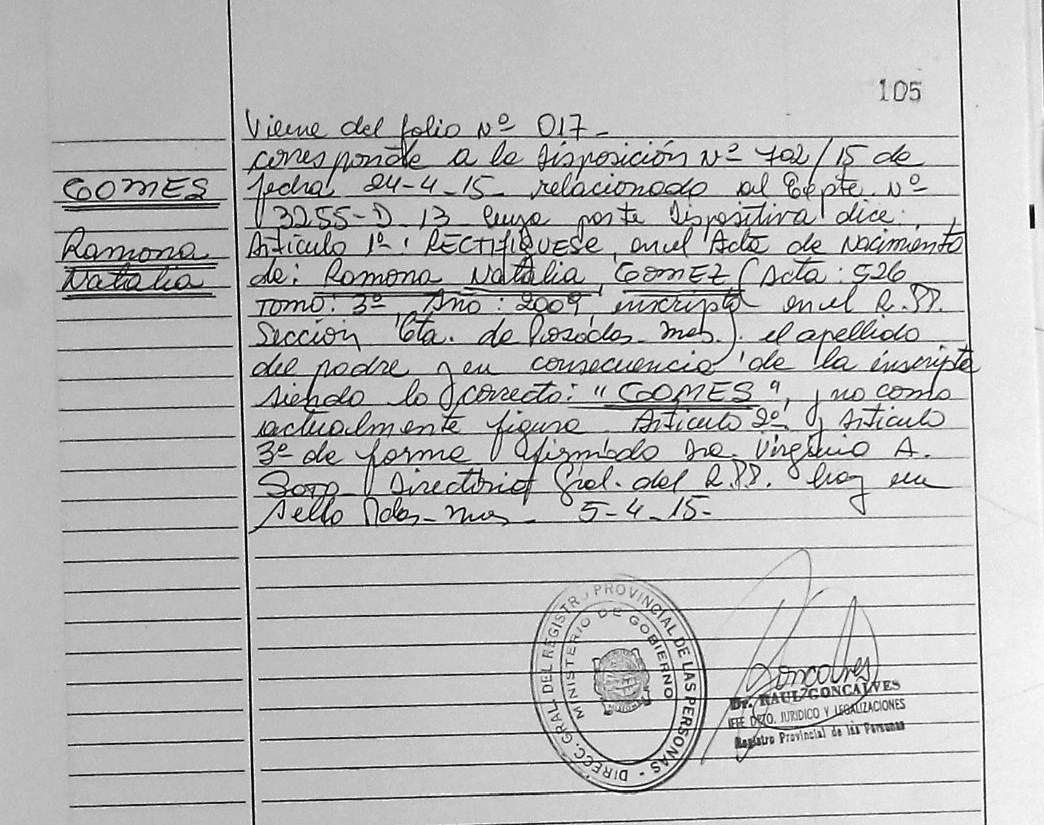 105
Viene del folio Nº 017-
corresponde a la Disposición Nº 702/15 de
GOMES
fecha 24-4-15- relacionado al Expte. Nº
3255-D-13 cuya parte Dispositiva dice:
Ramona
Artículo 1º: RECTIFIQUESE, en el Acta de Nacimiento
Natalia
de: Ramona Natalia GOMEZ (Acta: 526
Tomo: 3º, Año: 2009, inscripta en el R.PP.
Sección 6ta. de Posadas-Mnes.) el apellido
del padre y en consecuencia de la inscripta
siendo lo correcto: "GOMES", y no como
actualmente figura. Artículo 2º y Artículo
3º de forma. Firmado Dra. Virginia A.
Directora Gral. del R.PP. hay un
sello Pdas-Mnes- 5-4-15-
DIRECC. GRAL. DEL REGISTRO PROVINCIAL DE LAS PERSONAS -
MINISTERIO DE GOBIERNO
Goncalves
Dr. RAUL GONCALVES
JEFE DPTO. JURIDICO Y LEGALIZACIONES
Registro Provincial de las Personas